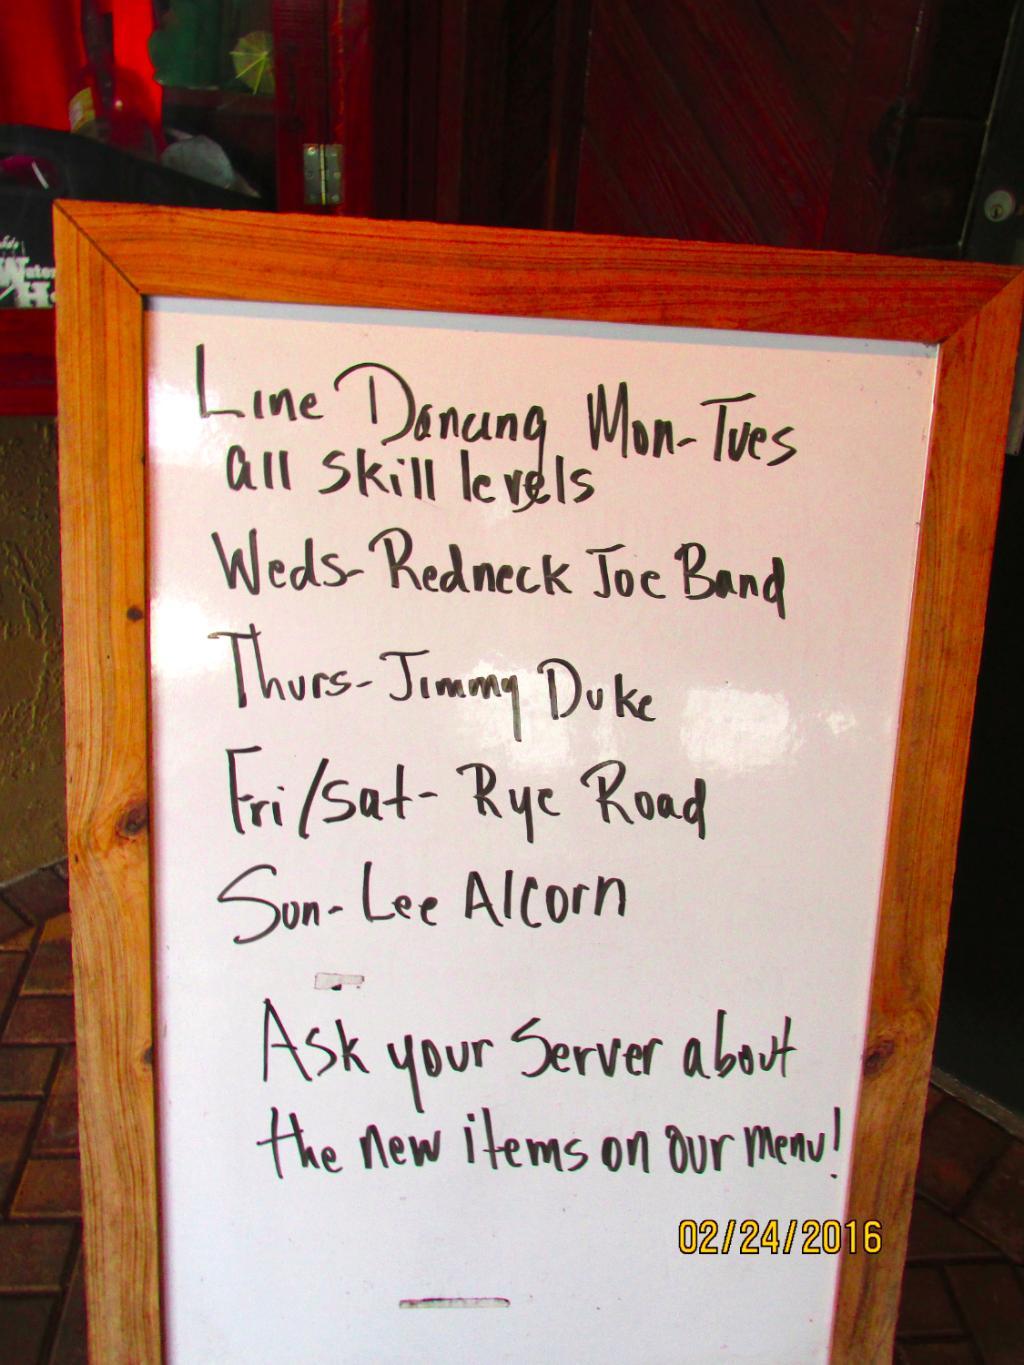 Line Dancing Mon-Tues
all skill levels
Weds-Redneck Joe Band
Thurs-Jimmy Duke
Fri/Sat- Rye Road
Sun-Lee Alcorn
Ask your Server about
the new items on our menu!
02/24/2016